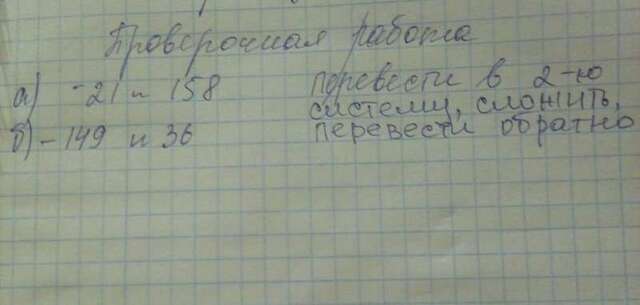 Проверочная работа
а) -21 и 158 перевести в 2-ю
систему, сложить,
б) -149 и 36 перевести обратно